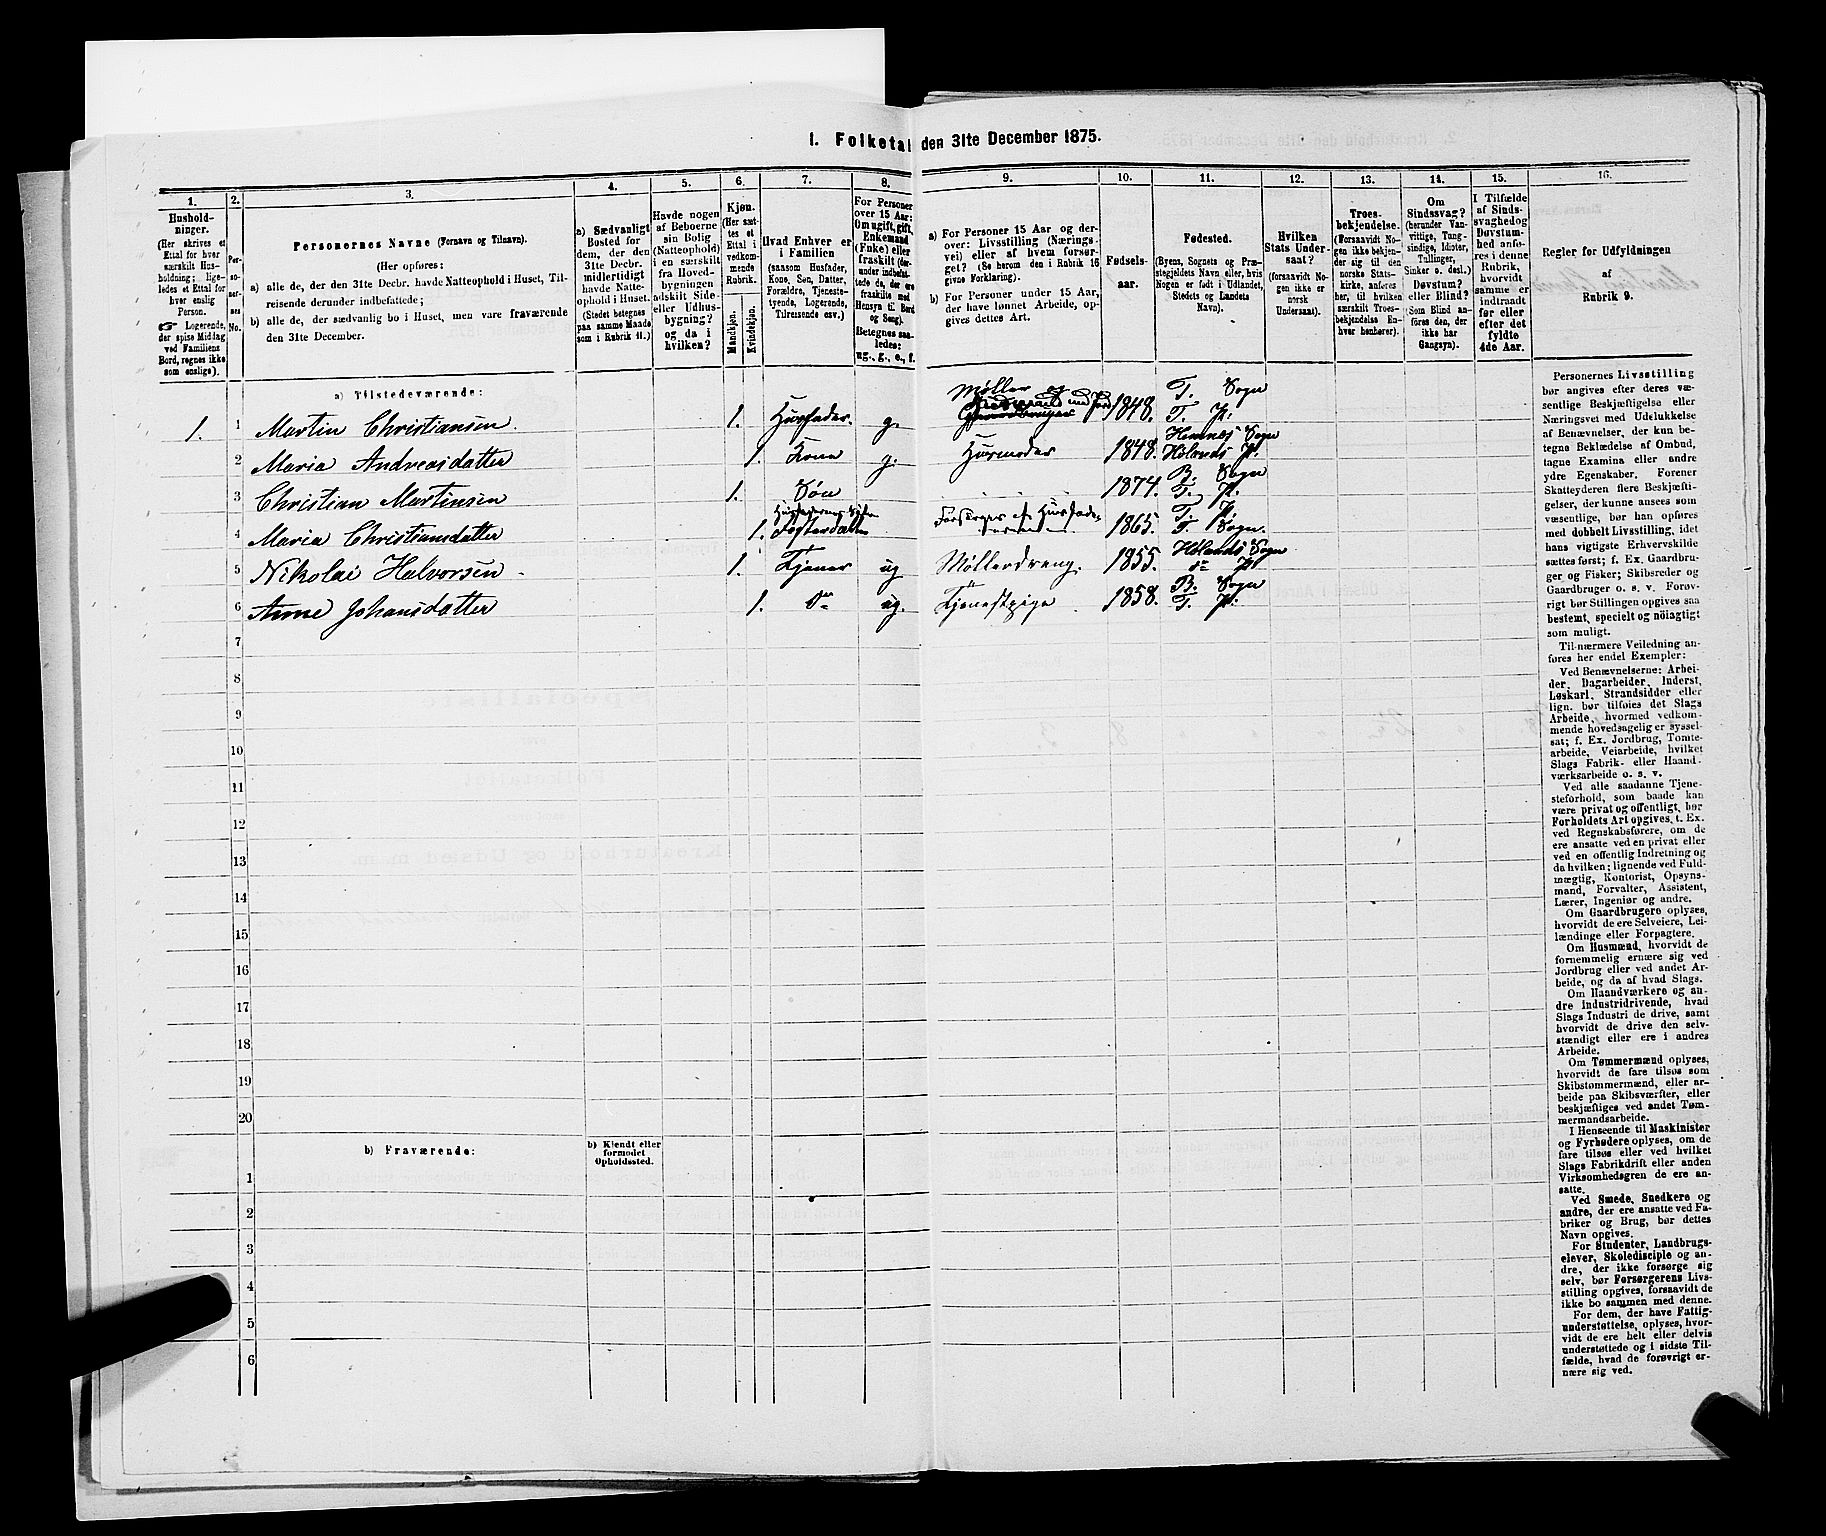 1. Folketal den 31te December 1875.
1. 2. 3. 4. 5. 6. 7. 8. 9. 10. 11. 12. 13. 14. 15. 16.
Hushold-
ninger.
(Her skrives et
Ettal for hver
særskilt Hus-
holdning; lige-
ledes et Ettal for
hver enslig
Person.
☞ Logerende,
der spise Middag
ved Familiens
Bord, regnes ikke
som enslige).
Per-
so-
ner-
nes
No.
Personernes Navne (Fornavn og Tilnavn).
(Her opføres:
a) alle de, der den 31te Decbr. havde Natteophold i Huset, Til-
reisende derunder indbefattede;
b) alle de, der sædvanlig bo i Huset, men vare fraværende
den 31te December.
a) Sædvanligt
Bosted for
dem, der den
31te Decbr.
midlertidigt
havde Natte-
ophold i Huset.
(Stedet betegnes
paa samme Maade
som i Rubrik 11.)
Havde nogen
af Beboerne
sin Bolig
(Natteophold)
i en særskilt
fra Hoved-
bygningen
adskilt Side-
eller Udhus-
bygning?
og da i
hvilken?
Kjøn.
(Her sæt-
tes et
Ettal i
vedkom-
mende
Rubrik.
Mandkjøn.
Kvindekjøn.
Hvad Enhver er
i Familien
(saasom Husfader,
Kone, Søn, Datter,
Forældre, Tjeneste-
tyende, Logerende,
Tilreisende osv.)
For Personer
over 15 Aar:
Om ugift, gift,
Enkemand
(Enke) eller
fraskilt (der-
under indbefat-
tede de, der ere
fraskilte med
Hensyn til Bord
og Seng).
Betegnes saa-
ledes:
ug., g., e., f.
a) For Personer 15 Aar og der-
over: Livsstilling (Nærings-
vei) eller af hvem forsør-
get? (Se herom den i Rubrik 16
givne Forklaring).
b) For Personer under 15 Aar,
der have lønnet Arbeide, op-
gives dettes Art.
Fødsels-
aar.
Fødested.
(Byens, Sognets og Præ-
stegjeldets Navn eller, hvis
Nogen er født i Udlandet,
Stedets og Landets
Navn).
Hvilken
Stats Under-
saat?
(forsaavidt No-
gen ikke er
norsk
Undersaat).
Troes-
bekjendelse.
(Forsaavidt No-
gen ikke bekjen-
der sig til den
norske Stats-
kirke, anføres
her, til hvilken
særskilt Troes-
bekjendelse En-
hver henhører).
Om
Sindssvag?
(herunder Van-
vittige, Tung-
sindige, Idioter,
Tullinger,
Sinker o. desl.)
Døvstum?
eller Blind?
(Som Blind an-
føres den, der
ikke har
Gangsyn).
I Tilfælde
af Sinds-
svaghed og
Døvstum-
hed anfø-
res i denne
Rubrik,
hvorvidt
samme er
indtraadt
før eller
efter det
fyldte
4de Aar.
Regler for Udfyldningen
af
Rubrik 9.
a) Tilstedeværende:
Møller og T. Sogn
1. 1 Martin Christiansen. 1. Husfader. g. 1848. T. Pr:
Hemnes Sogn
2 Maria Andreasdatter 1. Kone g. Husmoder 1848. Hølands Pr.
B. Sogn
3 Christian Martinsen 1. Søn 1874. T. Pr.
4 Maria Christiansdatter 1. Fosterdatter 1865. T. Sogn.
Hølands Sogn
5 Nikolai Halvorsen 1. Tjener ug Møllerdreng. 1855. do Pr
B. Sogn
6 Anne Johansdatter 1. do ug. Tjenestpige 1858. T. Pr:
7
8
9
10
11
12
13
14
15
16
17
18
19
20
b) Fraværende:
b) Kjendt eller
formodet
Opholdssted.
1
2
3
4
5
6
Personernes Livsstilling
bør angives efter deres væ-
sentlige Beskjæftigelse eller
Næringsvei med Udelukkelse
af Benævnelser, der kun be-
tegne Beklædelse af Ombud,
tagne Examina eller andre
ydre Egenskaber. Forener
Skatteyderen flere Beskjæfti-
gelser, der kunne ansees som
væsentlige, bør han opføres
med dobbelt Livsstilling, idet
hans vigtigste Erhvervskilde
sættes først; f. Ex. Gaardbru-
ger og Fisker; Skibsreder og
Gaardbruger o. s. v. Forøv-
rigt bør Stillingen opgives saa
bestemt, specielt og nöiagtigt
som muligt.
Til nærmere Veiledning an-
føres her endel Exempler:
Ved Benævnelserne: Arbei-
der, Dagarbeider, Inderst,
Løskarl, Strandsidder eller
lign. bør tilføies det Slags
Arbeide, hvormed vedkom-
mende hovedsagelig er syssel-
sat; f. Ex. Jordbrug, Tomte-
arbeide, Veiarbeide, hvilket
Slags Fabrik- eller Haand-
værksarbeide o. s. v.
Ved alle saadanne Tjene-
steforhold, som baade kan
være privat og offentligt, bør
Forholdets Art opgives, t. Ex.
ved Regnskabsførere, om de
ere ansatte ved en privat eller
ved en offentlig Indretning og
da hvilken; lignende ved Fuld-
mægtig, Kontorist, Opsyns-
mand, Forvalter, Assistent,
Lærer, Ingeniør og andre.
Om Gaardbrugere oplyses,
hvorvidt de ere Selveiere, Lei-
lændinge eller Forpagtere.
Om Husmænd, hvorvidt de
fornemmelig ernære sig ved
Jordbrug eller ved andet Ar-
beide, og da af hvad Slags.
Om Haandværkere og an-
dre Industridrivende, hvad
Slags Industri de drive, samt
hvorvidt de drive den selv-
stændigt eller ere i andres
Arbeide.
Om Tømmermænd oplyses,
hvorvidt de fare tilsøs som
Skibstømmermænd, eller ar-
beide paa Skibsværfter, eller
beskjæftiges ved andet Tøm-
mermandsarbeide.
I Henseende til Maskinister
og Fyrbødere oplyses, om de
fare tilsøs eller ved hvilket
Slags Fabrikdrift eller anden
Virksomhedsgren de ere an-
satte.
Ved Smede, Snedkere og
andre, der ere ansatte ved Fa-
briker og Brug, bør dettes
Navn opgives.
For Studenter, Landbrugs-
elever, Skoledisciple og an-
dre, der ikke forsørge sig
selv, bør Forsørgerens Livs-
stilling opgives, forsaavidt de
ikke bo sammen med denne.
For dem, der have Fattig-
understøttelse, oplyses, hvor-
vidt de ere helt eller delvis
understøttede og i sidste Til-
fælde, hvad de forøvrigt er-
nære sig ved.